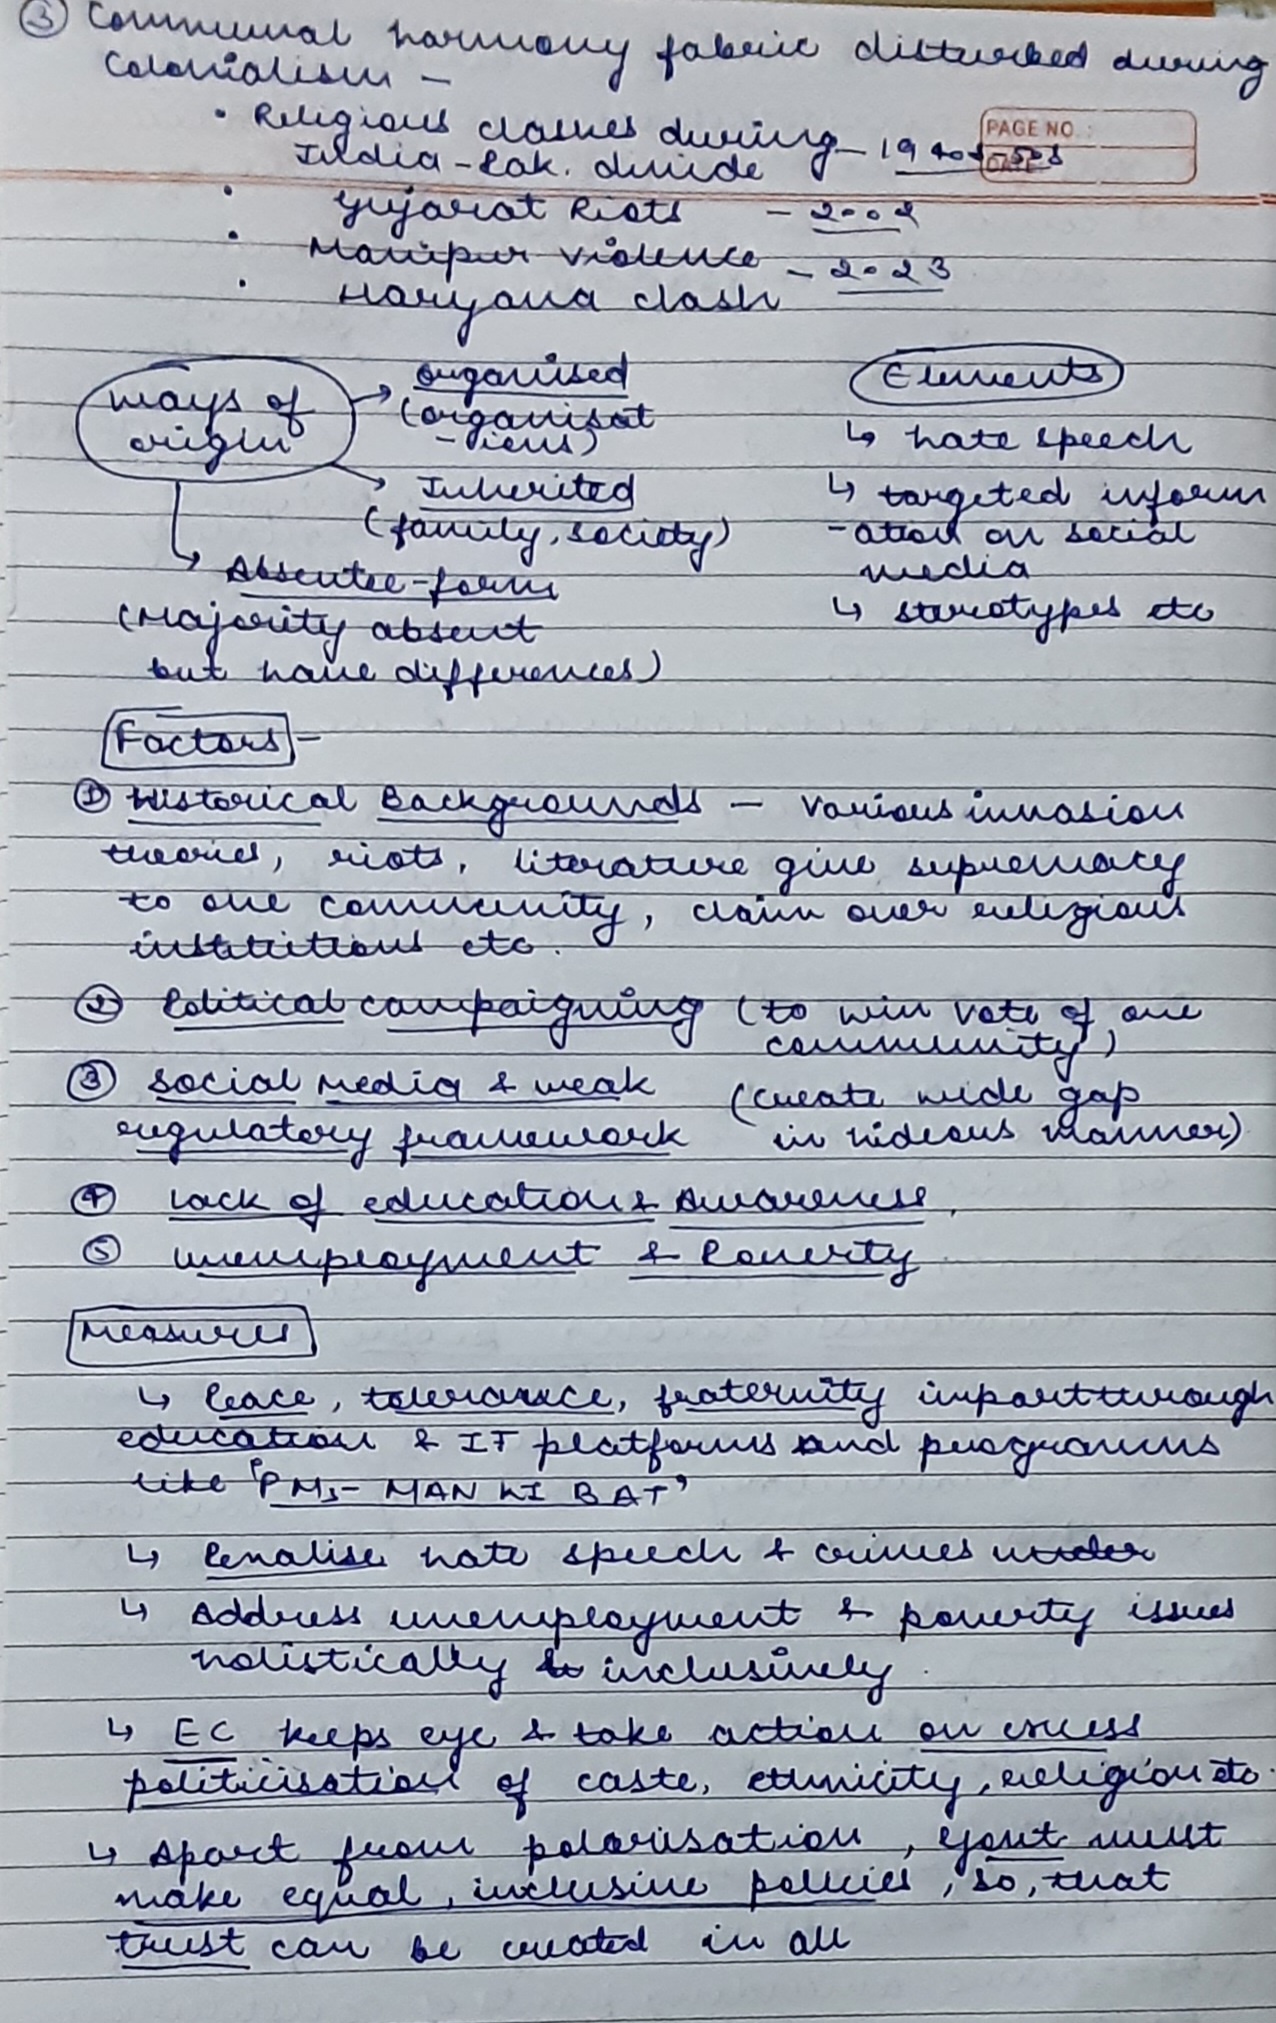 ③ Communal harmony fabric disturbed during
Colonialism -
• Religious clashes during - 1940s-50s
India-Pak. divide
PAGE NO.:
DATE
• Gujarat Riots - 2002
• Manipur violence - 2023
• Haryana clash
ways of
origin
organised
(organisat
-ions)
Inherited
(family, society)
Absentee-form
(Majority absent
but have differences)
Elements
↳ hate speech
↳ targeted inform
-ation on social
media
↳ sterotypes etc
Factors -
① Historical Backgrounds - various invasion
theories, riots, literature give supremacy
to one community, claim over religious
institutions etc.
② Political campaigning (to win vote of one
community)
③ social media & weak (create wide gap
regulatory framework in hideous manner)
④ Lack of education & Awareness.
⑤ unemployment & Poverty
Measures
↳ Peace, tolerance, fraternity impart through
education & IT platforms and programms
like 'PMs- MAN KI BAT'
↳ Penalise hate speech & crimes under
↳ Address unemployment & poverty issues
holistically & inclusively.
↳ EC keeps eye & take action on excess
politicisation of caste, ethnicity, religion etc.
↳ Apart from polarisation, govt must
make equal, inclusive policies, so, that
trust can be created in all